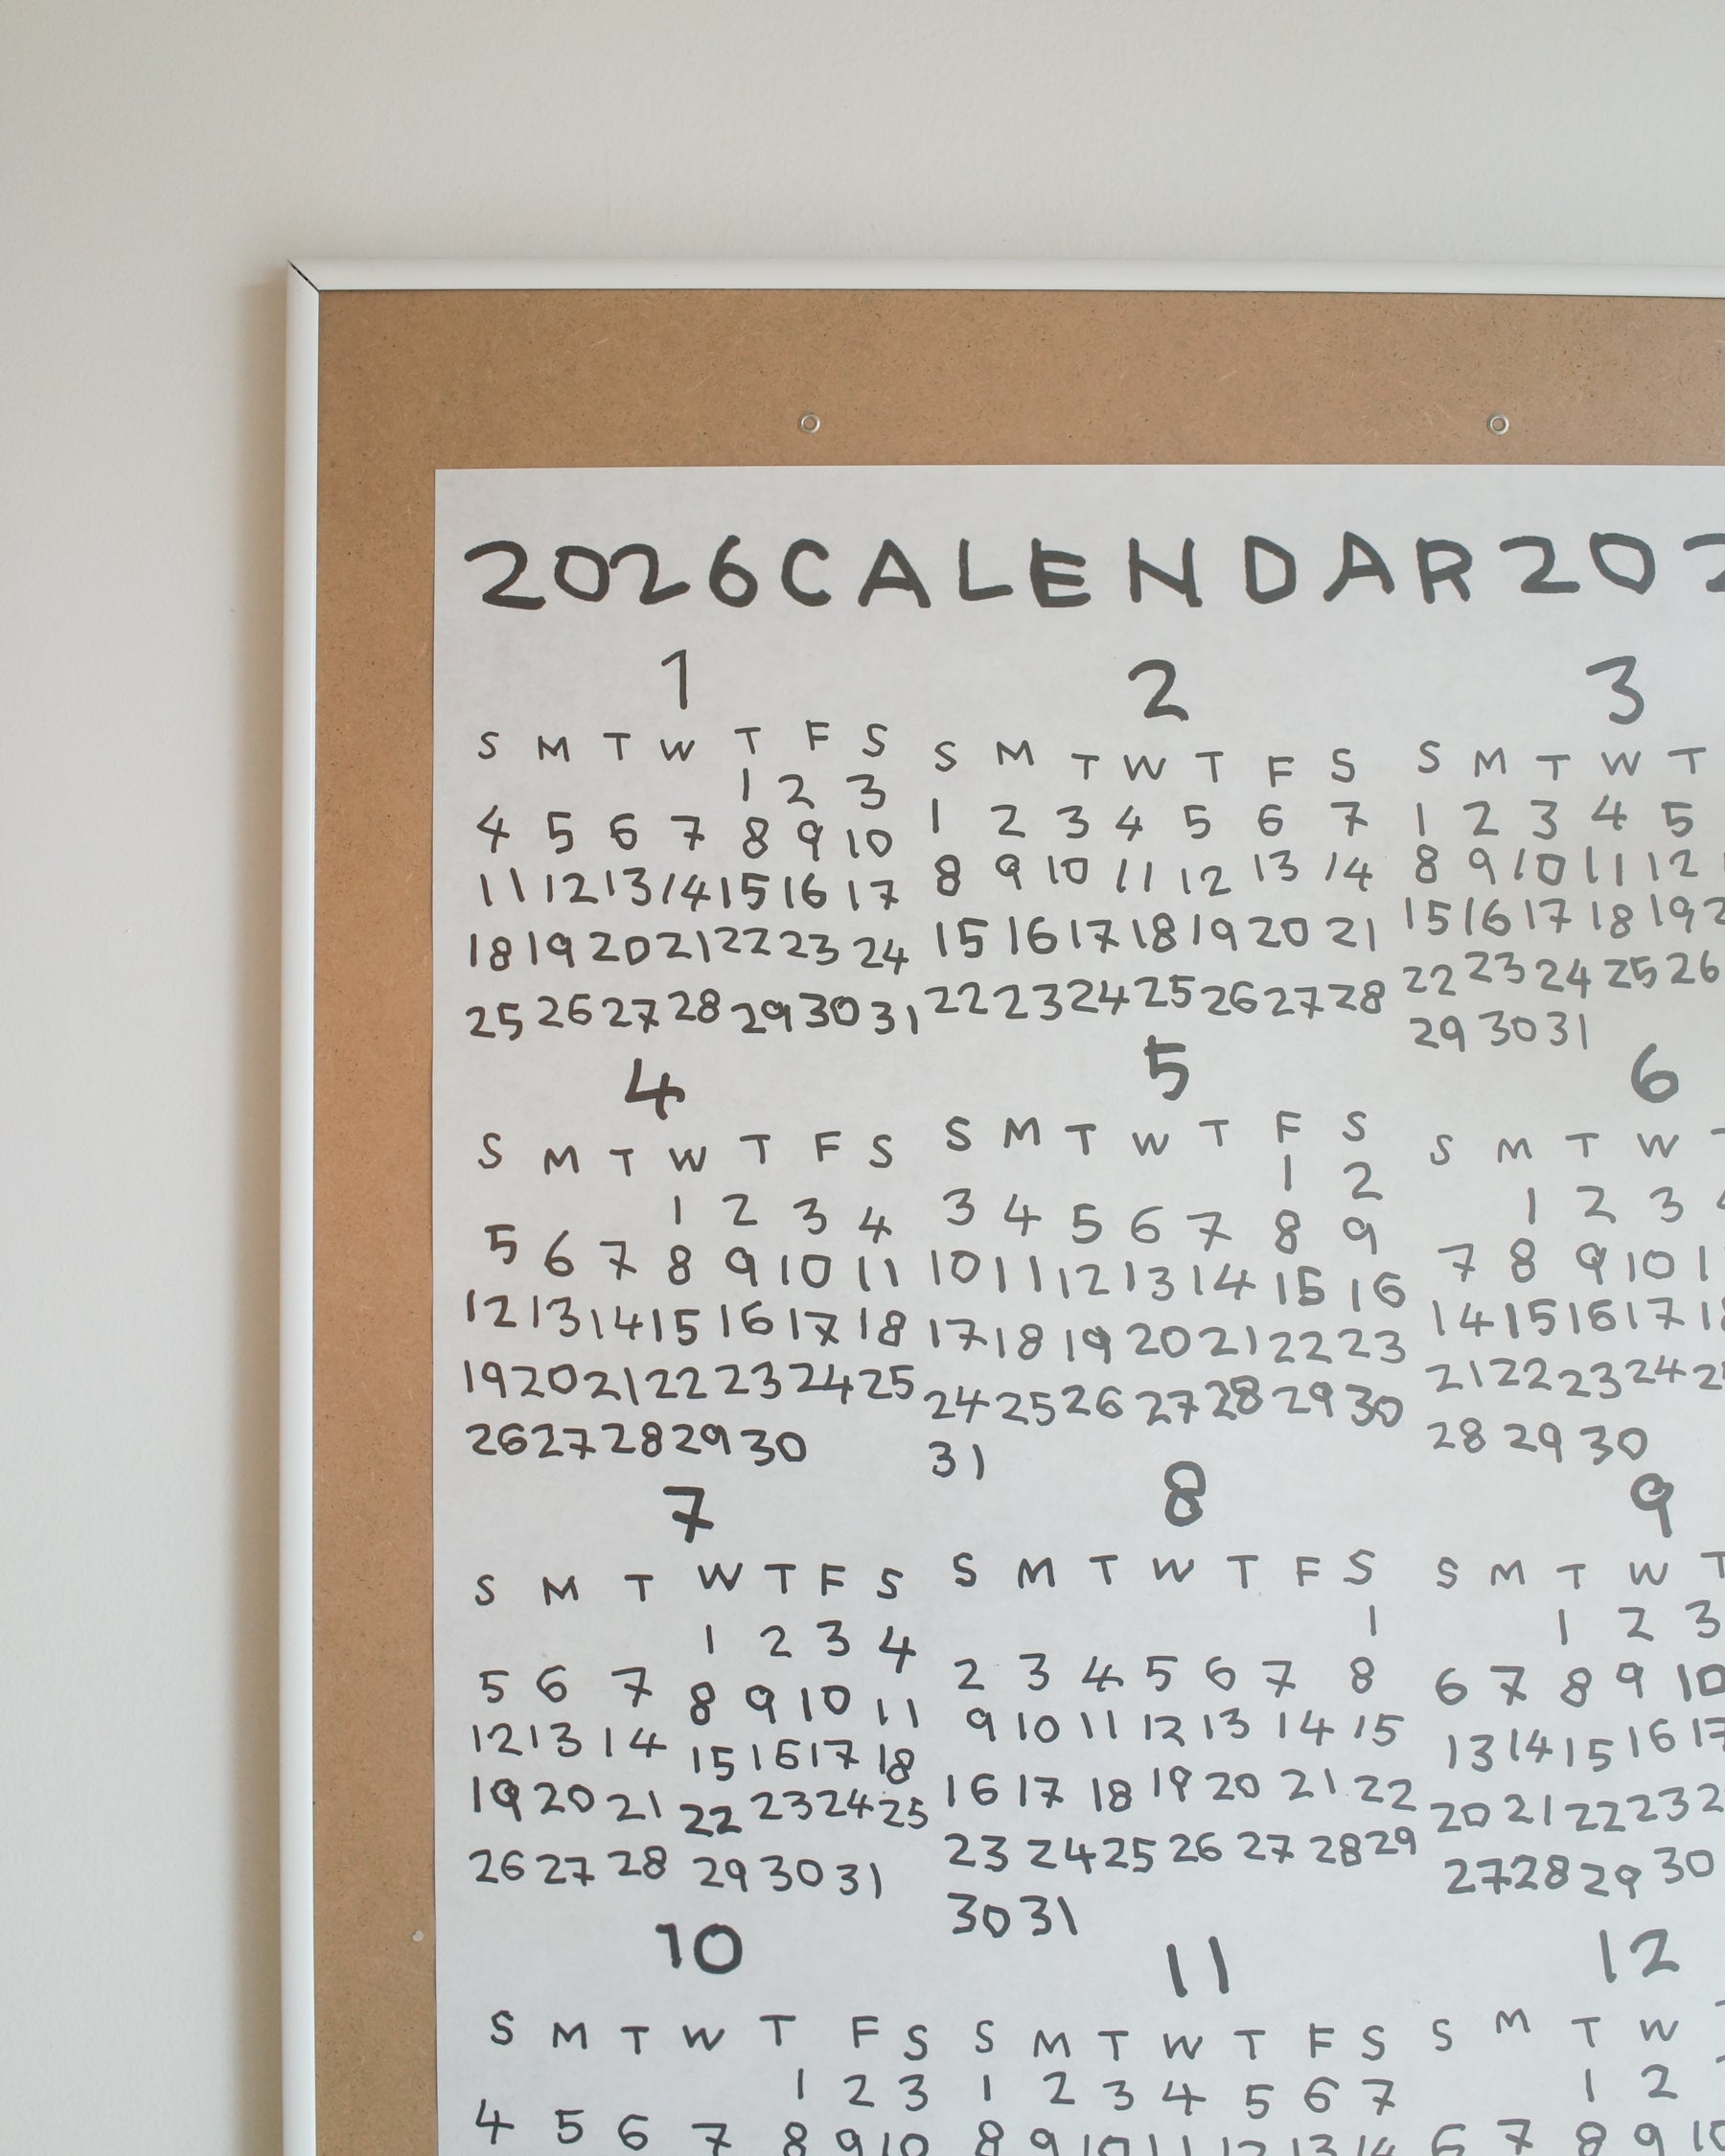 2026 CALENDAR 202
1
S M T W T F S
1 2 3
4 5 6 7 8 9 10
11 12 13 14 15 16 17
18 19 20 21 22 23 24
25 26 27 28 29 30 31
2
S M T W T F S
1 2 3 4 5 6 7
8 9 10 11 12 13 14
15 16 17 18 19 20 21
22 23 24 25 26 27 28
3
S M T W T
1 2 3 4 5
8 9 10 11 12
15 16 17 18 19 2
22 23 24 25 26
29 30 31
4
S M T W T F S
1 2 3 4
5 6 7 8 9 10 11
12 13 14 15 16 17 18
19 20 21 22 23 24 25
26 27 28 29 30
5
S M T W T F S
1 2
3 4 5 6 7 8 9
10 11 12 13 14 15 16
17 18 19 20 21 22 23
24 25 26 27 28 29 30
31
6
S M T W T
1 2 3 4
7 8 9 10 1
14 15 16 17 18
21 22 23 24 25
28 29 30
7
S M T W T F S
1 2 3 4
5 6 7 8 9 10 11
12 13 14 15 16 17 18
19 20 21 22 23 24 25
26 27 28 29 30 31
8
S M T W T F S
1
2 3 4 5 6 7 8
9 10 11 12 13 14 15
16 17 18 19 20 21 22
23 24 25 26 27 28 29
30 31
9
S M T W T
1 2 3
6 7 8 9 10
13 14 15 16 17
20 21 22 23 2
27 28 29 30
10
S M T W T F S
1 2 3
4 5 6 7 8 9 10
11
S M T W T F S
1 2 3 4 5 6 7
8 9 10 11 12 13 14
12
S M T W
1 2
6 7 8 9 10